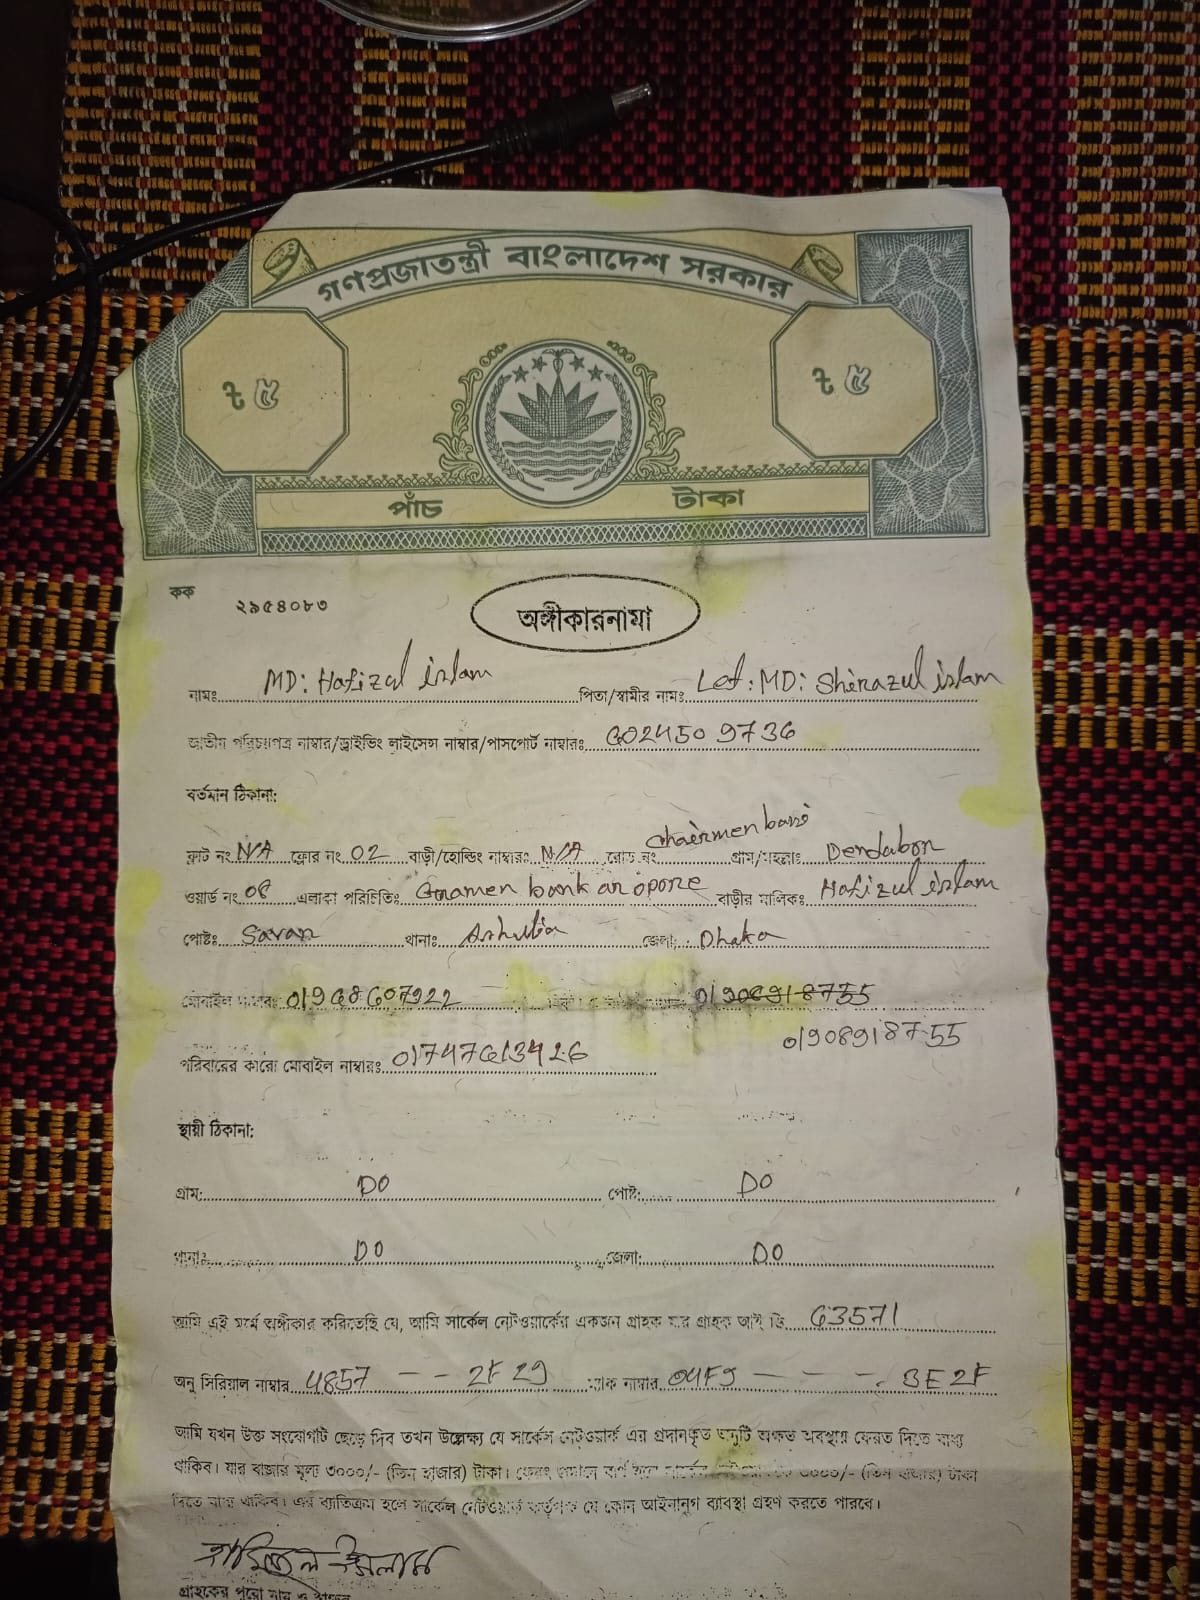 গণপ্রজাতন্ত্রী বাংলাদেশ সরকার
৳ ৫ ৳ ৫
পাঁচ টাকা
কক ২৯৫৪০৮৩
অঙ্গীকারনামা
নামঃ MD: Hafizul islam পিতা/স্বামীর নামঃ Let: MD: Sherazul islam
জাতীয় পরিচয়পত্র নাম্বার/ড্রাইভিং লাইসেন্স নাম্বার/পাসপোর্ট নাম্বারঃ 6024509736
বর্তমান ঠিকানা:
ফ্লাট নং N/A ফ্লোর নং 02 বাড়ী/হোল্ডিং নাম্বারঃ N/A রোড নং chairmen bari গ্রাম/মহল্লাঃ Dendabor
ওয়ার্ড নং 08 এলাকা পরিচিতিঃ Gramen bank ar opore বাড়ীর মালিকঃ Hafizul islam
পোষ্টঃ Savar থানাঃ Ashulia জেলা: Dhaka
মোবাইল 01968607922 01908918755
01908918755
পরিবারের কারো মোবাইল নাম্বারঃ 01747613426
স্থায়ী ঠিকানা:
গ্রাম: DO পোষ্ট: DO
থানাঃ DO জেলা: DO
আমি এই মর্মে অঙ্গীকার করিতেছি যে, আমি সার্কেল নেটওয়ার্কের একজন গ্রাহক যার গ্রাহক আই ডি 63571
অনু সিরিয়াল নাম্বার 4857 -- 2F29 ম্যাক নাম্বার 04F9 --- BE2F
আমি যখন উক্ত সংযোগটি ছেড়ে দিব তখন উল্লেক্ষ্য যে সার্কেল নেটওয়ার্ক এর প্রদানকৃত অনুটি অক্ষত অবস্থায় ফেরত দিতে বাধ্য
থাকিব। যার বাজার মূল্য ৩০০০/- (তিন হাজার) টাকা। ৩০০০/- (তিন হাজার) টাকা
দিতে বাধ্য থাকিব। এর ব্যতিক্রম হলে সার্কেল নেটওয়ার্ক কর্তৃপক্ষ যে কোন আইনানুগ ব্যাবস্থা গ্রহণ করতে পারবে।
হাফিজুল ইসলাম
গ্রাহকের পুরো নাম ও